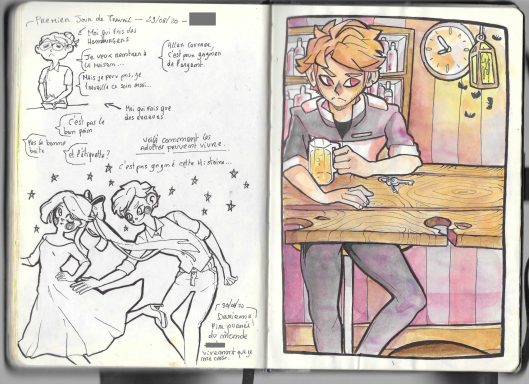 Premier Jour de Travail - 29/08/20 -
Moi qui fais des
Hamburgers
Je veux rentrer à
la maison...
Mais je peux pas, je
travaille ce soir aussi...
Allez Connor,
c'est pour gagner
de l'argent.
Moi qui fais que
des erreurs.
C'est pas le
bon pain
Pas la bonne
boîte
et l'étiquette?
Voilà comment les
adultes peuvent vivre.
c'est pas gagné cette Histoire...
30/08/20
Dernier
du monde
vivement que je
me casse.